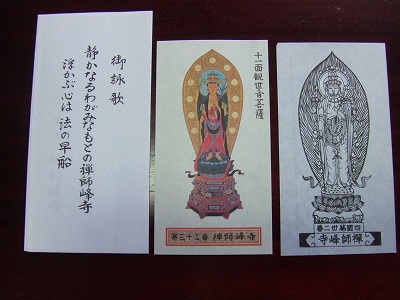 御詠歌
静かなるわがみなもとの禅師峰寺
浮かぶ心は 法の早船
十一面観世音菩薩
第三十二番 禅師峰寺
四國第卅二番
禪師峰寺